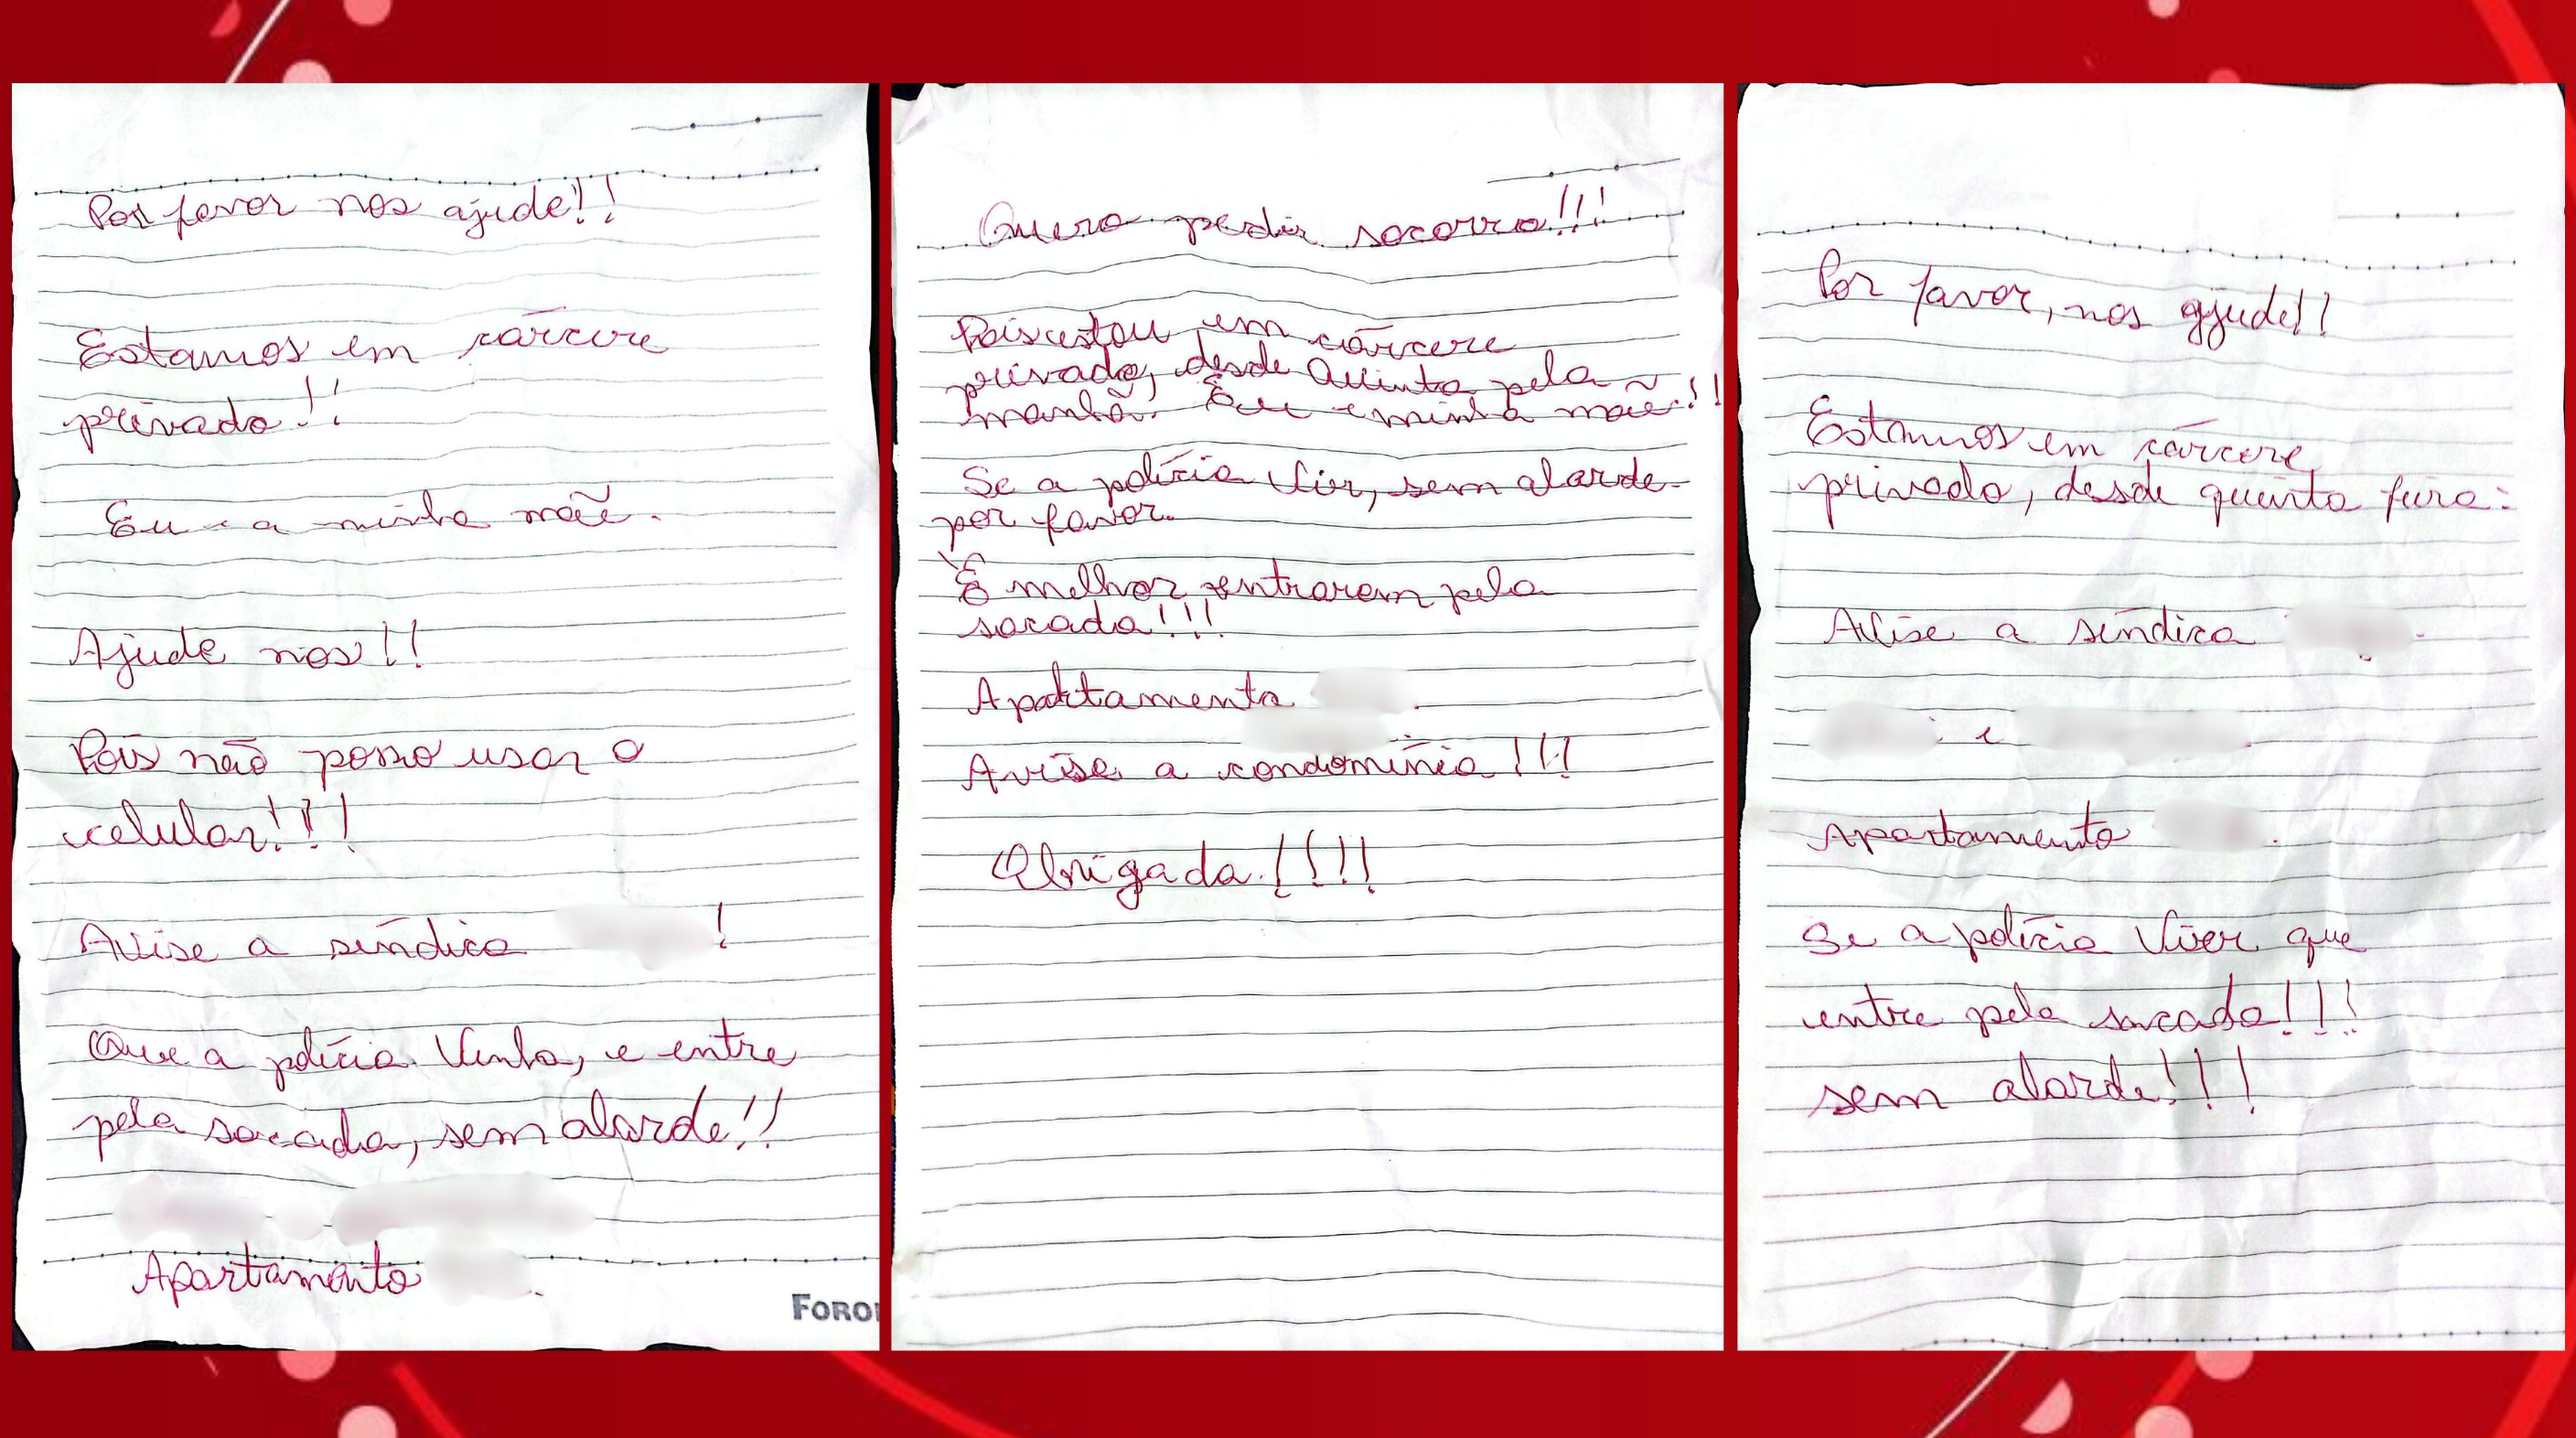 Por favor nos ajude!!
Estamos em cárcere
privado!!
Eu e a minha mãe.
Ajude nos!!
Pois não posso usar o
celular!!!
Avise a síndica !
Que a polícia venha, e entre
pela sacada, sem alarde!!
Apartamento .
FORO
Quero pedir socorro!!!
Pois estou em cárcere
privado, desde Quinta pela
manhã. Eu e minha mãe!!
Se a polícia vir, sem alarde
por favor.
É melhor entrarem pela
sacada!!!
Apartamento .
Avise a condomínia!!!
Obrigada!!!!
Por favor, nos ajude!!
Estamos em cárcere,
privado, desde quinta feira:
Avise a síndica .
e
Apartamento .
Se a polícia viver que
entre pela sacada!!!
sem alarde!!!